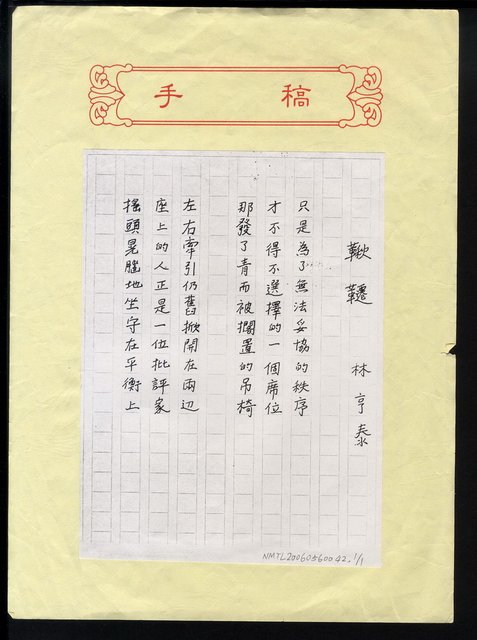 手稿
鞦韆 林亨泰
只是為了無法妥協的秩序
才不得不選擇的一個席位
那發了青而被擱置的吊椅
左右牽引仍舊掀開在兩边
座上的人正是一位批評家
搖頭晃腦地坐守在平衡上
NMTL20060560042.1/1